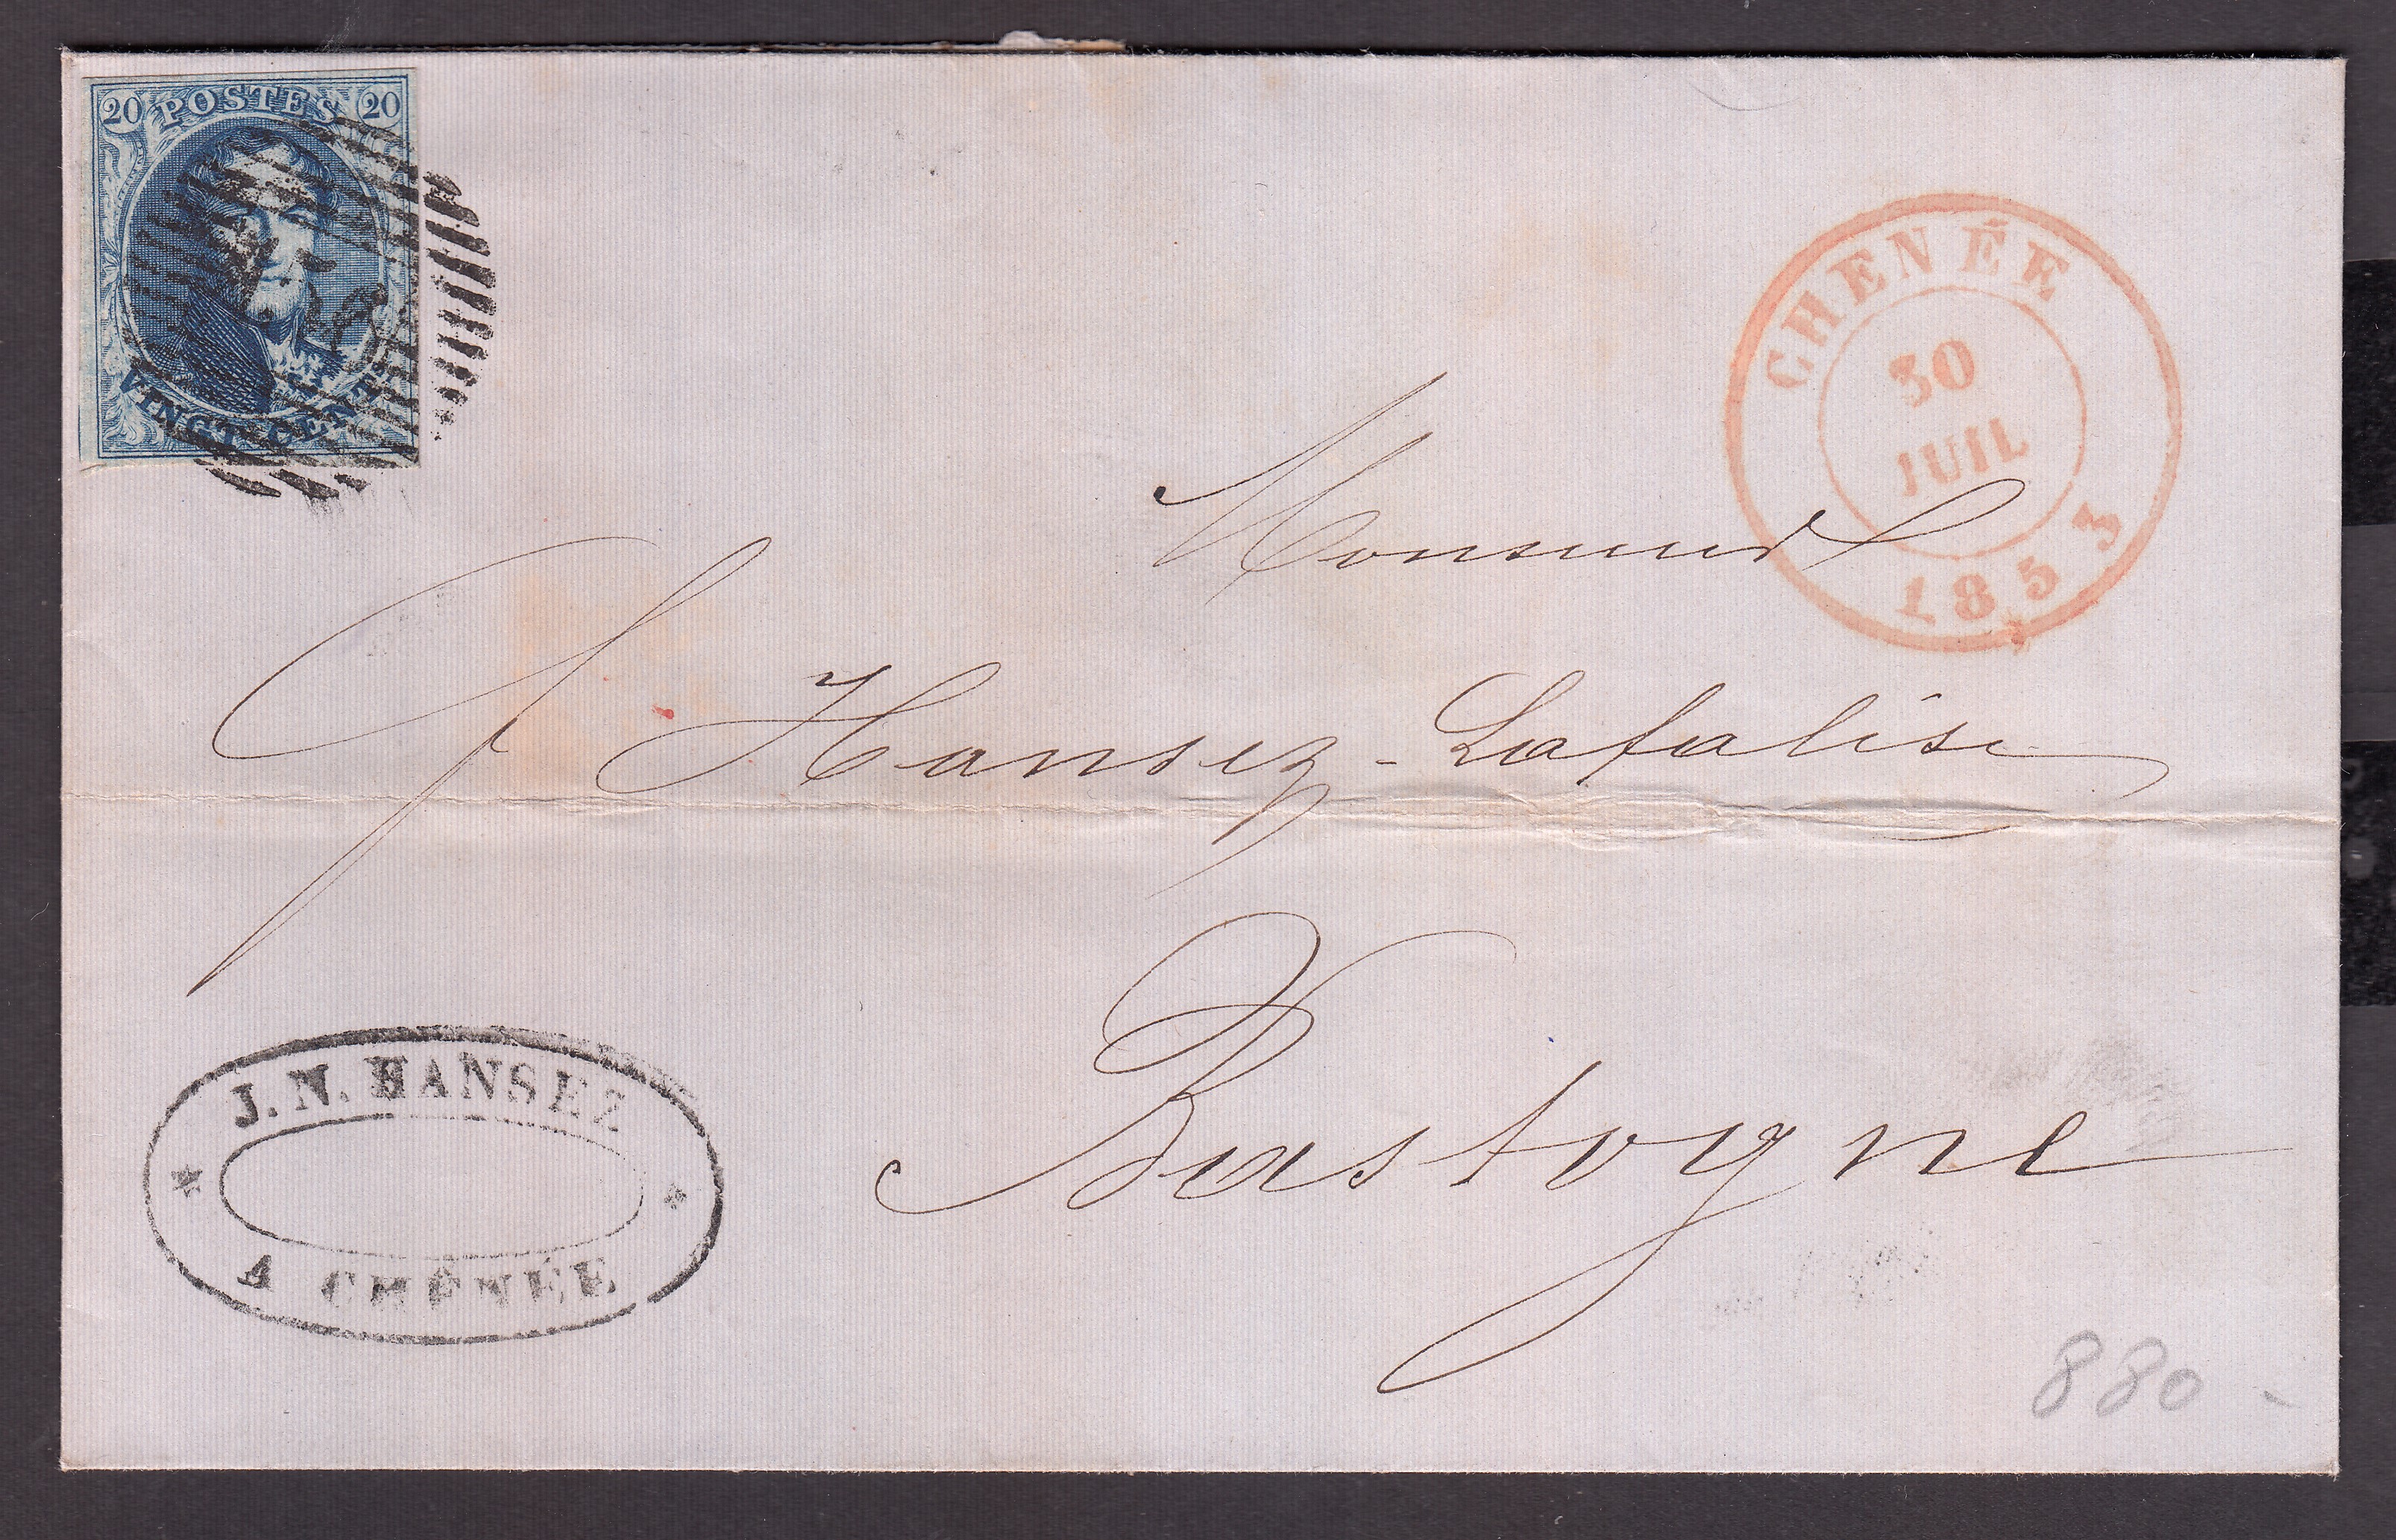 20 POSTES 20
VINGT CENTS
CHENÉE
30
JUIL
1853
Monsieur
J. Hansez-Lafalise
Bastogne
J. N. HANSEZ
A CHÊNÉE
880 -